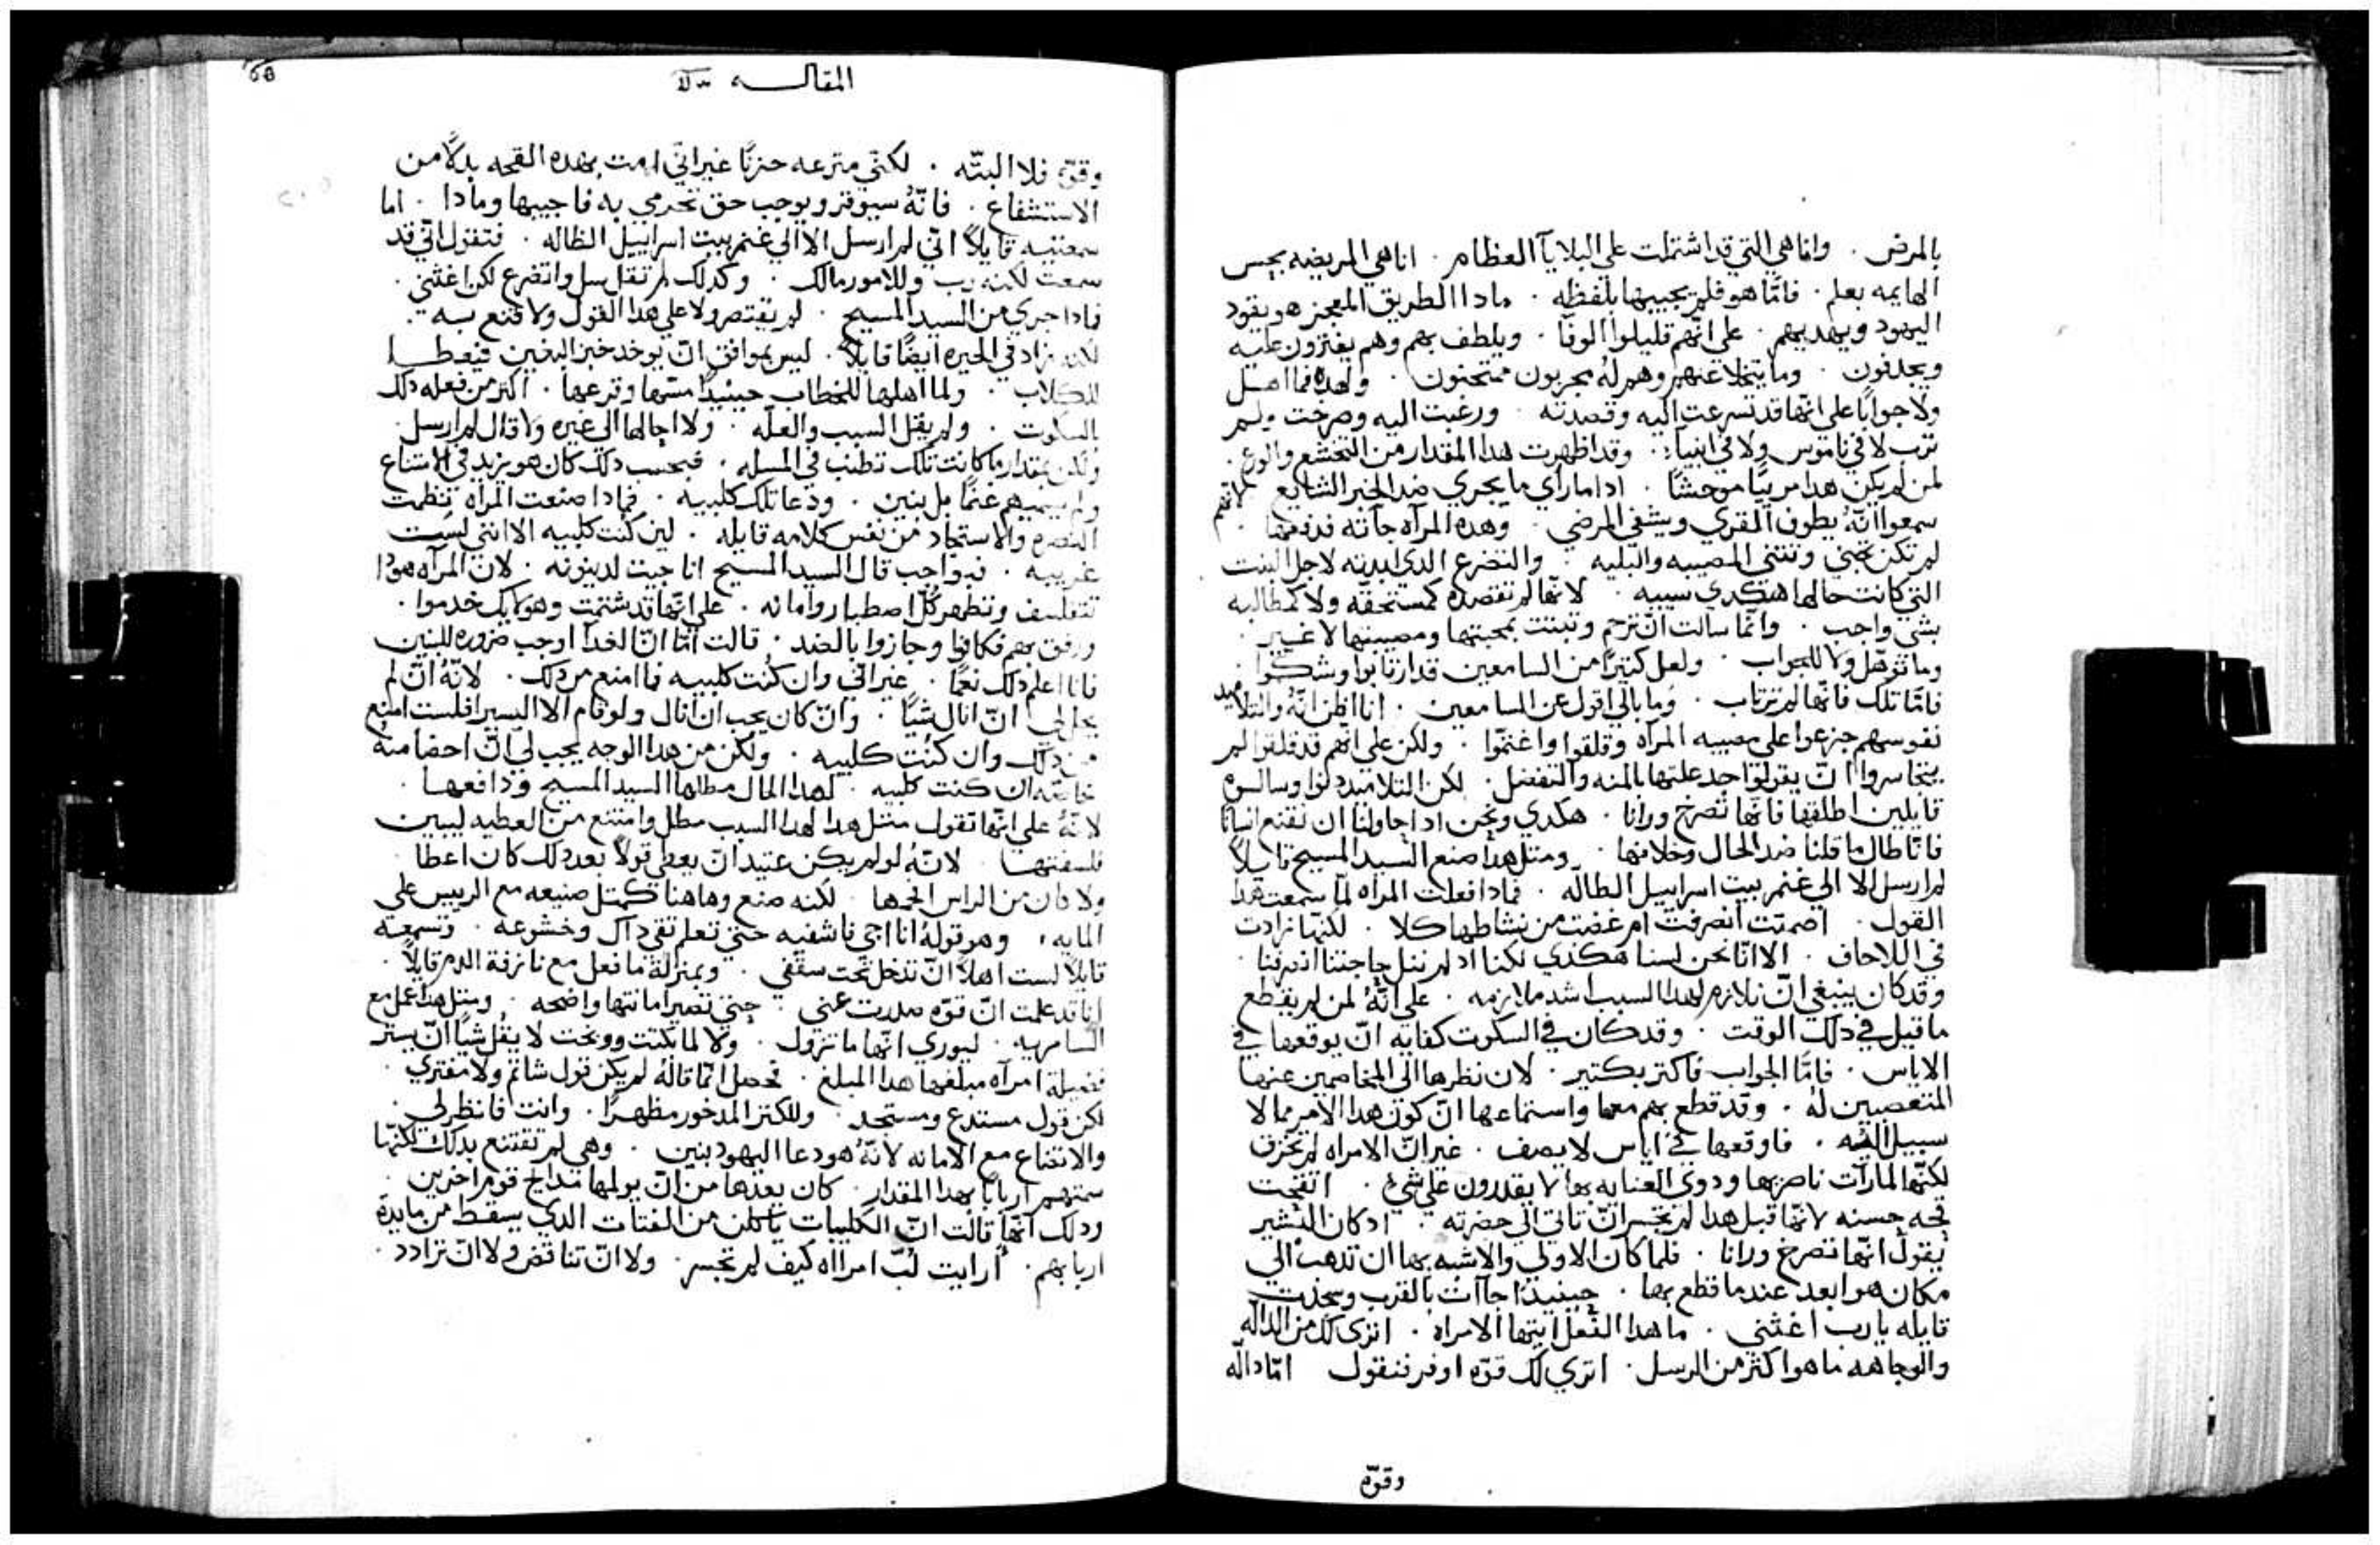 بالمرض . وانا هي التي قد اشتملت علي البلايآ العظام . انا هي المريضه بحس
الهايمه بعلم . فامّا هو فلم يجيبها بلفظه . مادا الطريق المعجز هو يقود
اليهود ويهديهم . علي انّهم قليلوا الوفآ . ويلطف بهم وهم يفترون عليه
ويجدفون . وما يتخلا عنهم وهم لهُ يجربون ممتحنون . ولهده فما اهل
ولا جوابًا علي انّها قد تسرعت اليه وقصدته . ورغبت اليه وصرخت ولم
ترب لا في ناموس ولا في انبياء . وقد اظهرت هدا المقدار من التخشع والورع .
لمن لم يكن هدا مريبًا موحشًا . ادا ما رأي ما يجري ضد الخبر الشايع
سمعوا انّهُ يطوف القري ويشفي المرضي . وهده المرآه جآته فدفعها .
لمن لم تكن تحني وتثني المصيبه والبليه . والتضرع الدي ابدته لاجل البنت
التي كانت حالها هكدي سييه . لانّها لم تقصده كمستحقّه ولا كمطالبه
بشي واجب . وانّما سالت انّ ترحم وتبنت بمحبتها ومصيبتها لا غير .
وما توهل ولا للجواب . ولعل كثيرًا من السامعين قد ارتابوا وشكّوا .
فامّا تلك فانّها لم ترتاب . وما بالي اقول عن السامعين . انا اظن انّهُ والتلاميد
نفوسهم جزعوا علي مصيبه المرآه وقلقوا واغتمّوا . ولكن علي انّهم قد قلقوا لم
يتجاسروا انّ يقولوا جد علتها بالمنه والتفضل . لكن التلاميد دنوا وسالوه
قايلين اطلقها فانّها تصرخ ورانا . هكدي ونحن ادا حاولنا ان نقنع انسانًا
فانّا طال ما قلنا ضد الحال وخلافها . ومثل هدا صنع السيد المسيح قايلاً
لم ارسل الا الي غنم بيت اسراييل الضالّه . فمادا فعلت المرآه لمّا سمعت هدا
القول . اصمتت انصرفت ام غضت من نشاطها كلا . لكنّها زادت
في اللاحاف . الا انّا نحن لسنا هكدي لكنا اد لم ننل حاجتنا انصرفنا .
وقد كان ينبغي انّ نلازم لهدا السبب اشد ملازمه . علي انّهُ لمن لم يقطع
ما قيل في دلك الوقت . وقد كان في السكوت كفايه انّ يوقعها في
الاياس . فامّا الجواب فاكتر بكتير . لان نظرها الي المخاصمين عنها
المتعصبين لهُ . وقد قطع بهم معها واستماعها انّ كون هدا الامر مما لا
سبيل اليه . فاوقعها في اياس لا يصف . غير انّ الامراه لم تحزن
لكنّها لما رأت ناصريها ودوي العنايه بها لا يقدرون علي شي . اتقحت
قحه حسنه لانّها قبل هدا لم تجسر انّ تاتي الي حضرته . اد كان البشير
يقول انّها تصرخ ورانا . فلما كان الاولي والاشبه بها ان تدهب الي
مكان هو ابعد عندما قطع بها . حينيدًا جاآت بالقرب وسجدت
قايله يا رب اغثني . ما هدا الفعل ايتها الامراه . اتري لك من الدالّه
والوجاهه ما هو اكثر من الرسل . اتري لك قوّه اوفر فنقول امّا دالّه
وقوّه
المقالــــه
وقوّه فلا البتّه . لكنّي مترعه حزنًا غير انّي امت بهده القحه بدلاً من
الاستشفاع . فانّهُ سيوقر ويوجب حق تحرمي به فاجيبها ومادا . اما
سمعتيه قايلاً انّي لم ارسل الا الي غنم بيت اسراييل الظاله . فتقول انّي قد
سمعت لكنه رب وللامور مالك . وكدلك لم تقل سل واتضرع لكن اغثني .
فمادا جري من السيد المسيح . لم يقتصر ولا علي هدا القول ولا قنع به .
لكنه زاد في الحيره ايضًا قايلاً . ليس بموافق انّ يوخد خبز البنين فيعطا
للكلاب . ولما اهلها للخطاب حينيدًا مسّها وقرعها . اكثر من فعله دلك
بالسكوت . ولم يقل السبب والعلّه . ولا احالها الي غيره ولا قال لم ارسل .
ولكن بمقدار ما كانت تلك تطنب في المسله . فبحسب دلك كان هو يزيد في الامتناع
ولم يسميهم غنمًا بل بنين . ودعا تلك كلبيه . فمادا صنعت المرآه نظمت
النصره والاستنجاد من نفس كلامه قايله . لين كنت كلبيه الا انني لست
غريبه . فبواجب قال السيد المسيح انا جيت لدينونه . لان المرآه هودا
تتفلسف وتظهر كُلّ اصطبار وامانه . علي انّها قد شتمت وهولايك خدموا .
ورفق بهم فكافوا وجازوا بالضد . قالت امّا انّ الغدآ اوجب ضروره للبنين
فانا اعلم دلك نعمًا . غير انّي وان كنت كلبيه فما امنع من دلك . لانّهُ انّ لم
يحل لي انّ انال شيًا . وانّ كان يجب ان انال ولو قام الا اليسير افلست امنع
من دلك وان كنت كلبيه . ولكن من هدا الوجه يجب لي انّ احضا منه
خاصّه ان كنت كلبيه . لهدا الحال مطلها السيد المسيح ودافعها .
لانّهُ علي انّها تقول مثل هدا لهدا السبب مطل وامتنع من العطيه ليبين
فلسفتها . لانّهُ لو لم يكن عتيد انّ يعطي قولاً بعد دلك كان اعطا
ولا كان من الراس الجمها . لكنه صنع وهاهنا كمثل صنيعه مع الرييس علي
المايه . وهو قولهُ انا اجي فاشفيه حتي تعلم تقي داك وخشوعه . وتسمعه
قايلاً لست اهلاً انّ تدخل تحت سقفي . وبمنزلة ما فعل مع نازفة الدم قايلاً .
انا قد علمت انّ قوّه صدرت عني . حتي تصير امانتها واضحه . ومثل هدا عمل مع
السامريه . ليوري انّها ما تزول . ولا لما بكتت ووبخت لا يقل شيًا انّ يستر
فضيلة امرآه مبلغها هدا المبلغ . فحصل انّ ما قالهُ لم يكن قول شاتم ولا مفتري .
لكن قول مستدع ومستجد . وللكنز المدخور مظهرًا . وانت فانظر لي .
والاتضاع مع الامانه لانّهُ هو دعا اليهود بنين . وهي لم تقتنع بدلك لكنّها
سمتهم اربابًا بهدا المقدار . كان بعدها من انّ يولمها مدايح قوم اخرين .
ودلك انّها قالت انّ الكلبيات ياكلن من الفتات الدي يسقط من مايدة
اربابهم . ارايت لُبّ امراه كيف لم تجسر . ولا انّ تناقض ولا انّ ترادد .